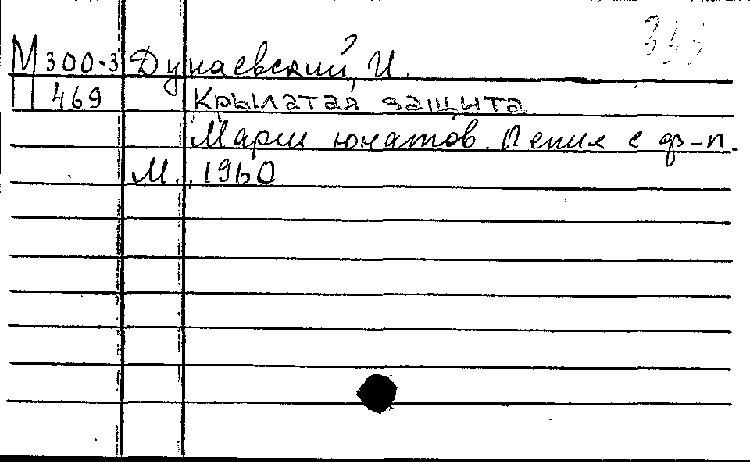 М 300-3 Дунаевский, И.
П 469 Крылатая защита
Марш юнатов. Пение с ф-п.
М., 1960